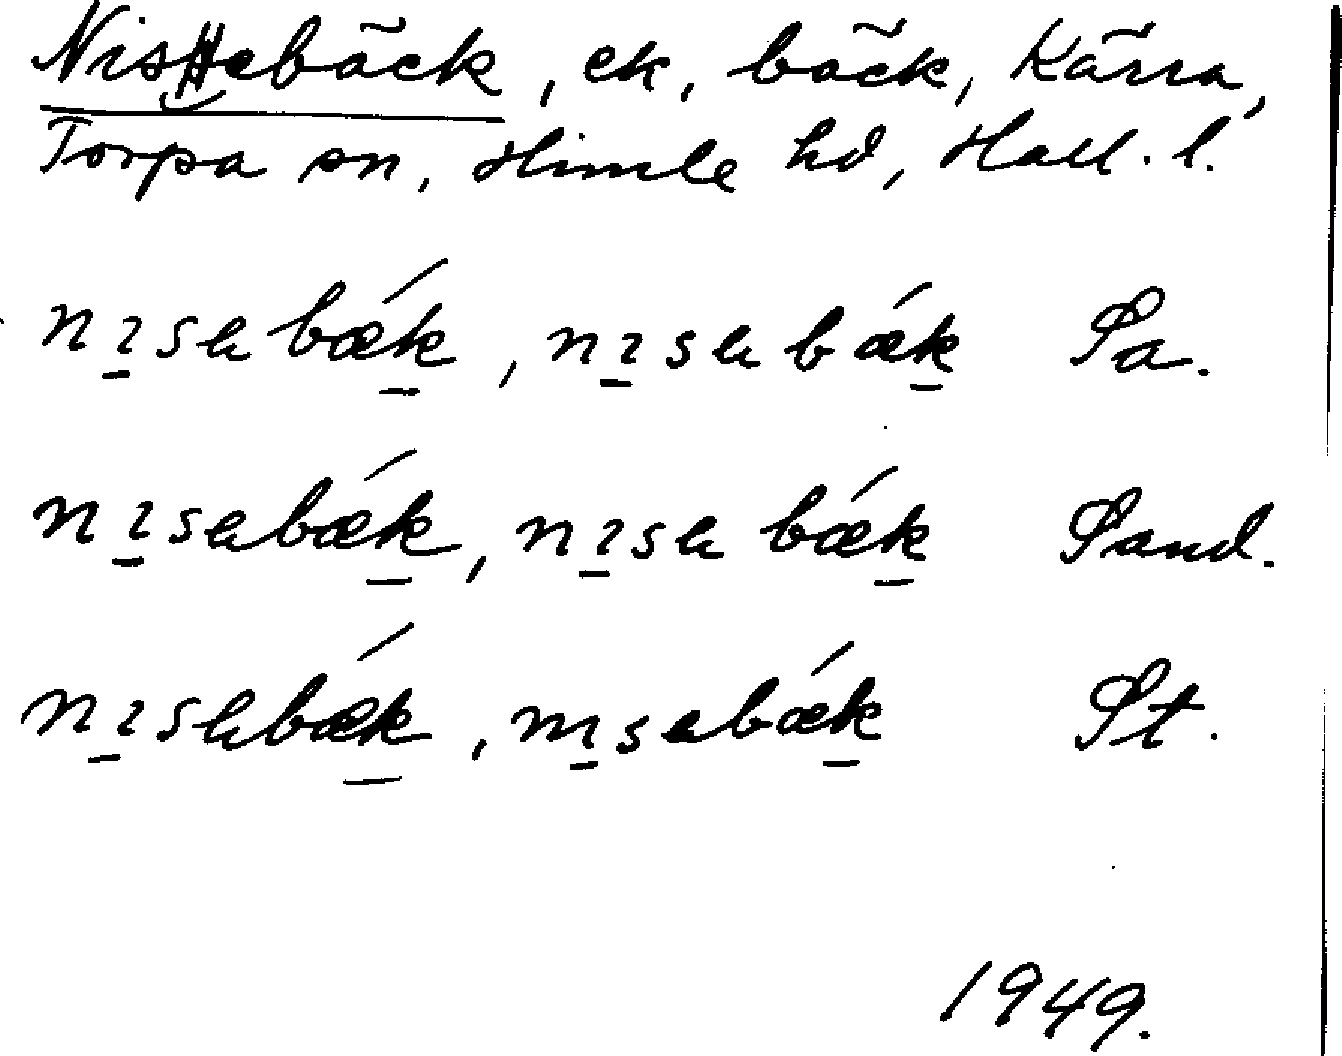 Nissebäck, ek, bäck, Kärra,
Torpa sn, Himle hd, Hall. l.
nɪsabǽk, nɪsabǽk Sa.
nɪsabǽk, nɪsabǽk Sand.
nɪsabǽk, nɪsabǽk St.
1949.